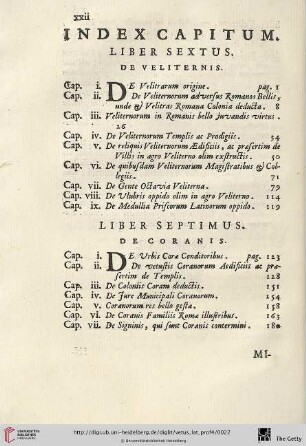 xxii
INDEX CAPITUM.
LIBER SEXTUS.
DE VELITERNIS.
Cap. i. DE Velitrarum origine. pag. 1
Cap. ii. De Veliternorum adversus Romanos Bellis,
unde & Velitras Romana Colonia deducta. 8
Cap. iii. Veliternorum in Romanis bello juvandis virtus.
26
Cap. iv. De Veliternorum Templis ac Prodigiis. 34
Cap. v. De reliquis Veliternorum Ædificiis, ac præsertim de
Villis in agro Veliterno olim exstructis. 50
Cap. vi. De quibusdam Veliternorum Magistratibus & Col-
legiis. 71
Cap. vii. De Gente Octavia Veliterna. 79
Cap. viii. De Ulubris oppido olim in agro Veliterno. 114
Cap. ix. De Medullia Priscorum Latinorum oppido. 119
LIBER SEPTIMUS.
DE CORANIS.
Cap. i. DE Urbis Coræ Conditoribus. pag. 123
Cap. ii. De vetustis Coranorum Aedificiis ac præ-
sertim de Templis. 128
Cap. iii. De Coloniis Coram deductis. 151
Cap. iv. De Jure Municipali Coranorum. 154
Cap. v. Coranorum res bello gesta. 158
Cap. vi. De Coranis Familiis Roma illustribus. 163
Cap. vii. De Signinis, qui sunt Coranis contermini. 180
MI-
http://digi.ub.uni-heidelberg.de/diglit/vetus_lat_prof4/0027
© Universitätsbibliothek Heidelberg
The Getty